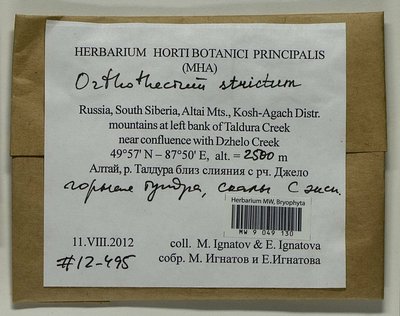 HERBARIUM HORTI BOTANICI PRINCIPALIS
(MHA)
Orthothecium strictum
Russia, South Siberia, Altai Mts., Kosh-Agach Distr.
mountains at left bank of Taldura Creek
near confluence with Dzhelo Creek
49°57' N – 87°50' E, alt. = 2500 m
Алтай, р. Талдура близ слияния с рч. Джело
горная тундра, скалы С эксп.
Herbarium MW, Bryophyta
MW 9 049 130
11.VIII.2012
coll. M. Ignatov & E. Ignatova
#12-495
собр. М. Игнатов и Е.Игнатова